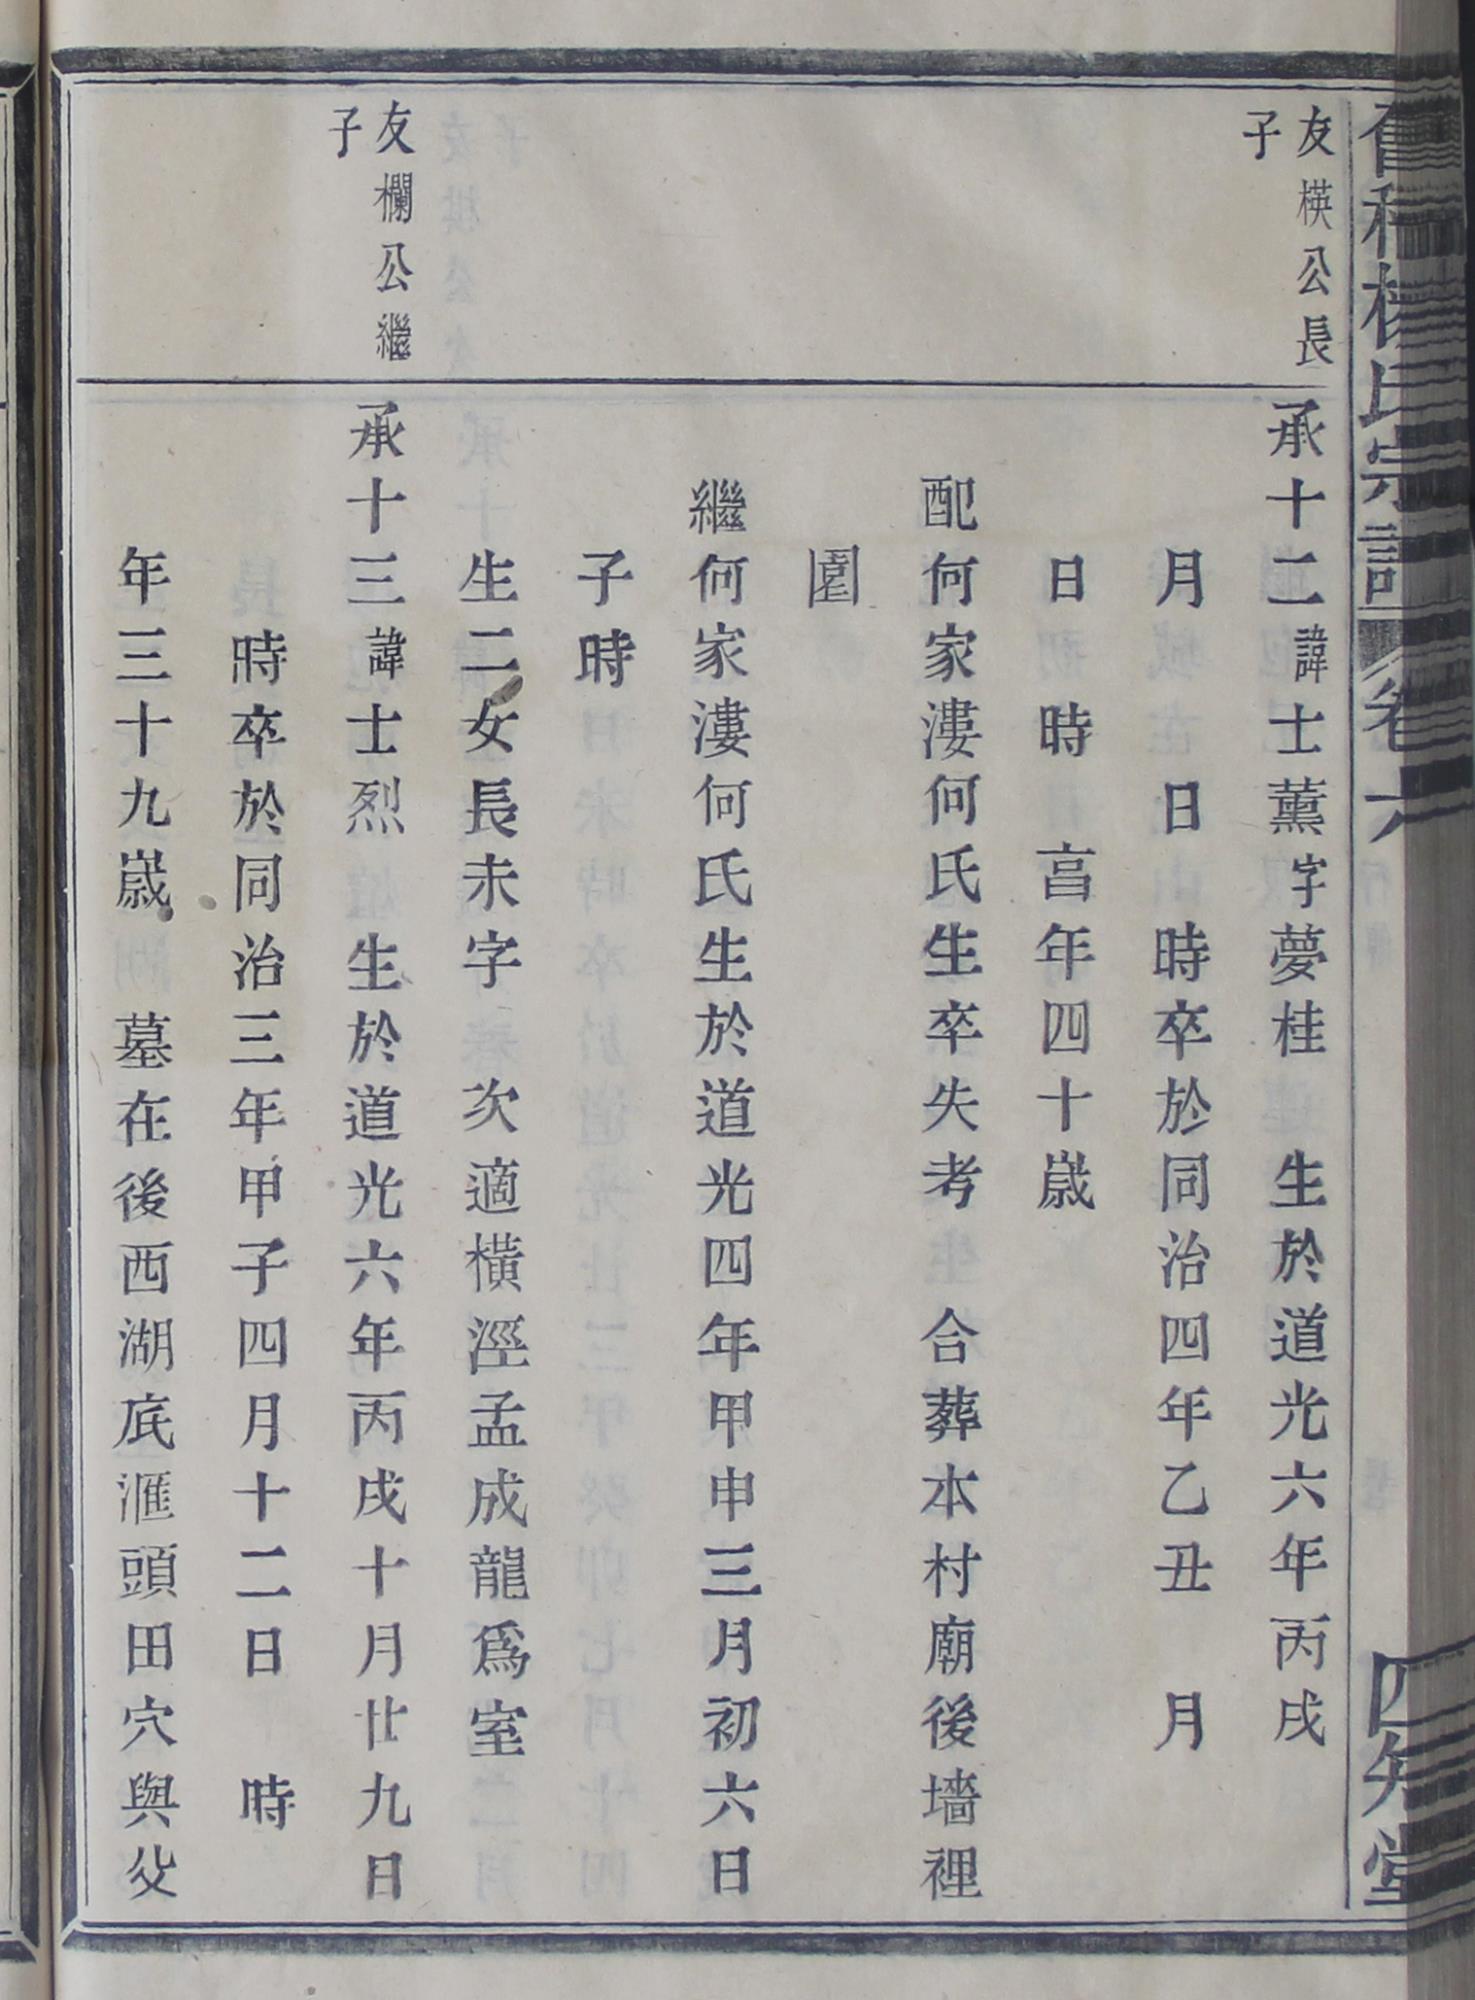 楊氏宗譜 卷六 四知堂
友楧公長
子
承十二諱士薰字夢桂 生於道光六年丙戌
月 日 時卒於同治四年乙丑 月
日 時 亯年四十歲
配何家漊何氏生卒失考 合葬本村廟後墻裡
園
繼何家漊何氏生於道光四年甲申三月初六日
子時
生二女長未字 次適橫涇孟成龍爲室
友欄公繼
子
承十三諱士烈 生於道光六年丙戌十月廿九日
時卒於同治三年甲子四月十二日 時
年三十九歲 墓在後西湖底滙頭田穴與父